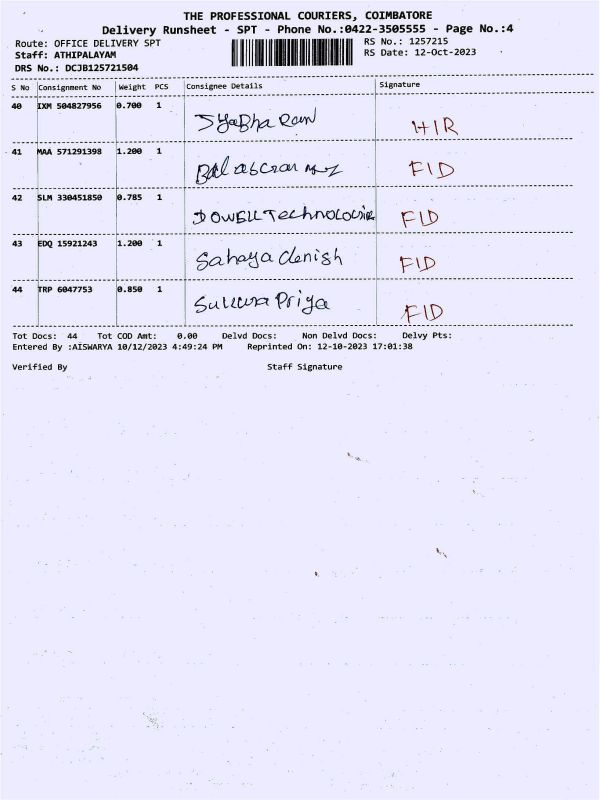 THE PROFESSIONAL COURIERS, COIMBATORE
Delivery Runsheet - SPT - Phone No.:0422-3505555 - Page No.:4
Route: OFFICE DELIVERY SPT RS No.: 1257215
Staff: ATHIPALAYAM RS Date: 12-Oct-2023
DRS No.: DCJB125721504
S No Consignment No Weight PCS Consignee Details Signature
40 IXM 504827956 0.700 1
HIR
41 MAA 571291398 1.200 1
FID
42 SLM 330451850 0.785 1
DOWELL Technologies FID
43 EDQ 15921243 1.200 1
Sahaya denish FID
44 TRP 6047753 0.850 1
Priya FID
Tot Docs: 44 Tot COD Amt: 0.00 Delvd Docs: Non Delvd Docs: Delvy Pts:
Entered By :AISWARYA 10/12/2023 4:49:24 PM Reprinted On: 12-10-2023 17:01:38
Verified By Staff Signature